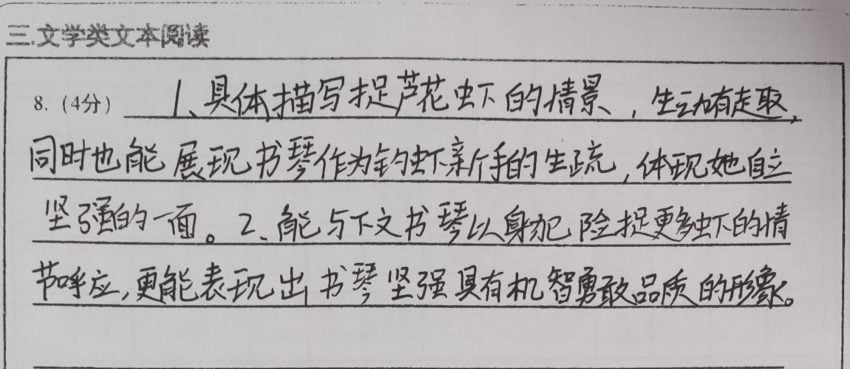 三.文学类文本阅读
8.（4分） 1、具体描写捉芦花虾的情景，生动有趣，
同时也能展现书琴作为钓虾新手的生疏，体现她自立
坚强的一面。2、能与下文书琴以身犯险捉更多虾的情
节呼应，更能表现出书琴坚强具有机智勇敢品质的形象。